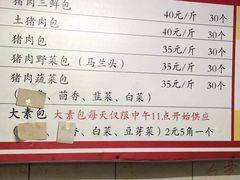 猪肉三鲜包 40元/斤 30个
土猪肉包 40元/斤 30个
猪肉包 35元/斤 30个
猪肉野菜包（马兰头） 35元/斤 30个
猪肉蔬菜包 35元/斤 30个
茴香、韭菜、白菜）
大素包 大素包每天仅限中午11点开始供应
香、白菜、豆芽菜）2元5角一个